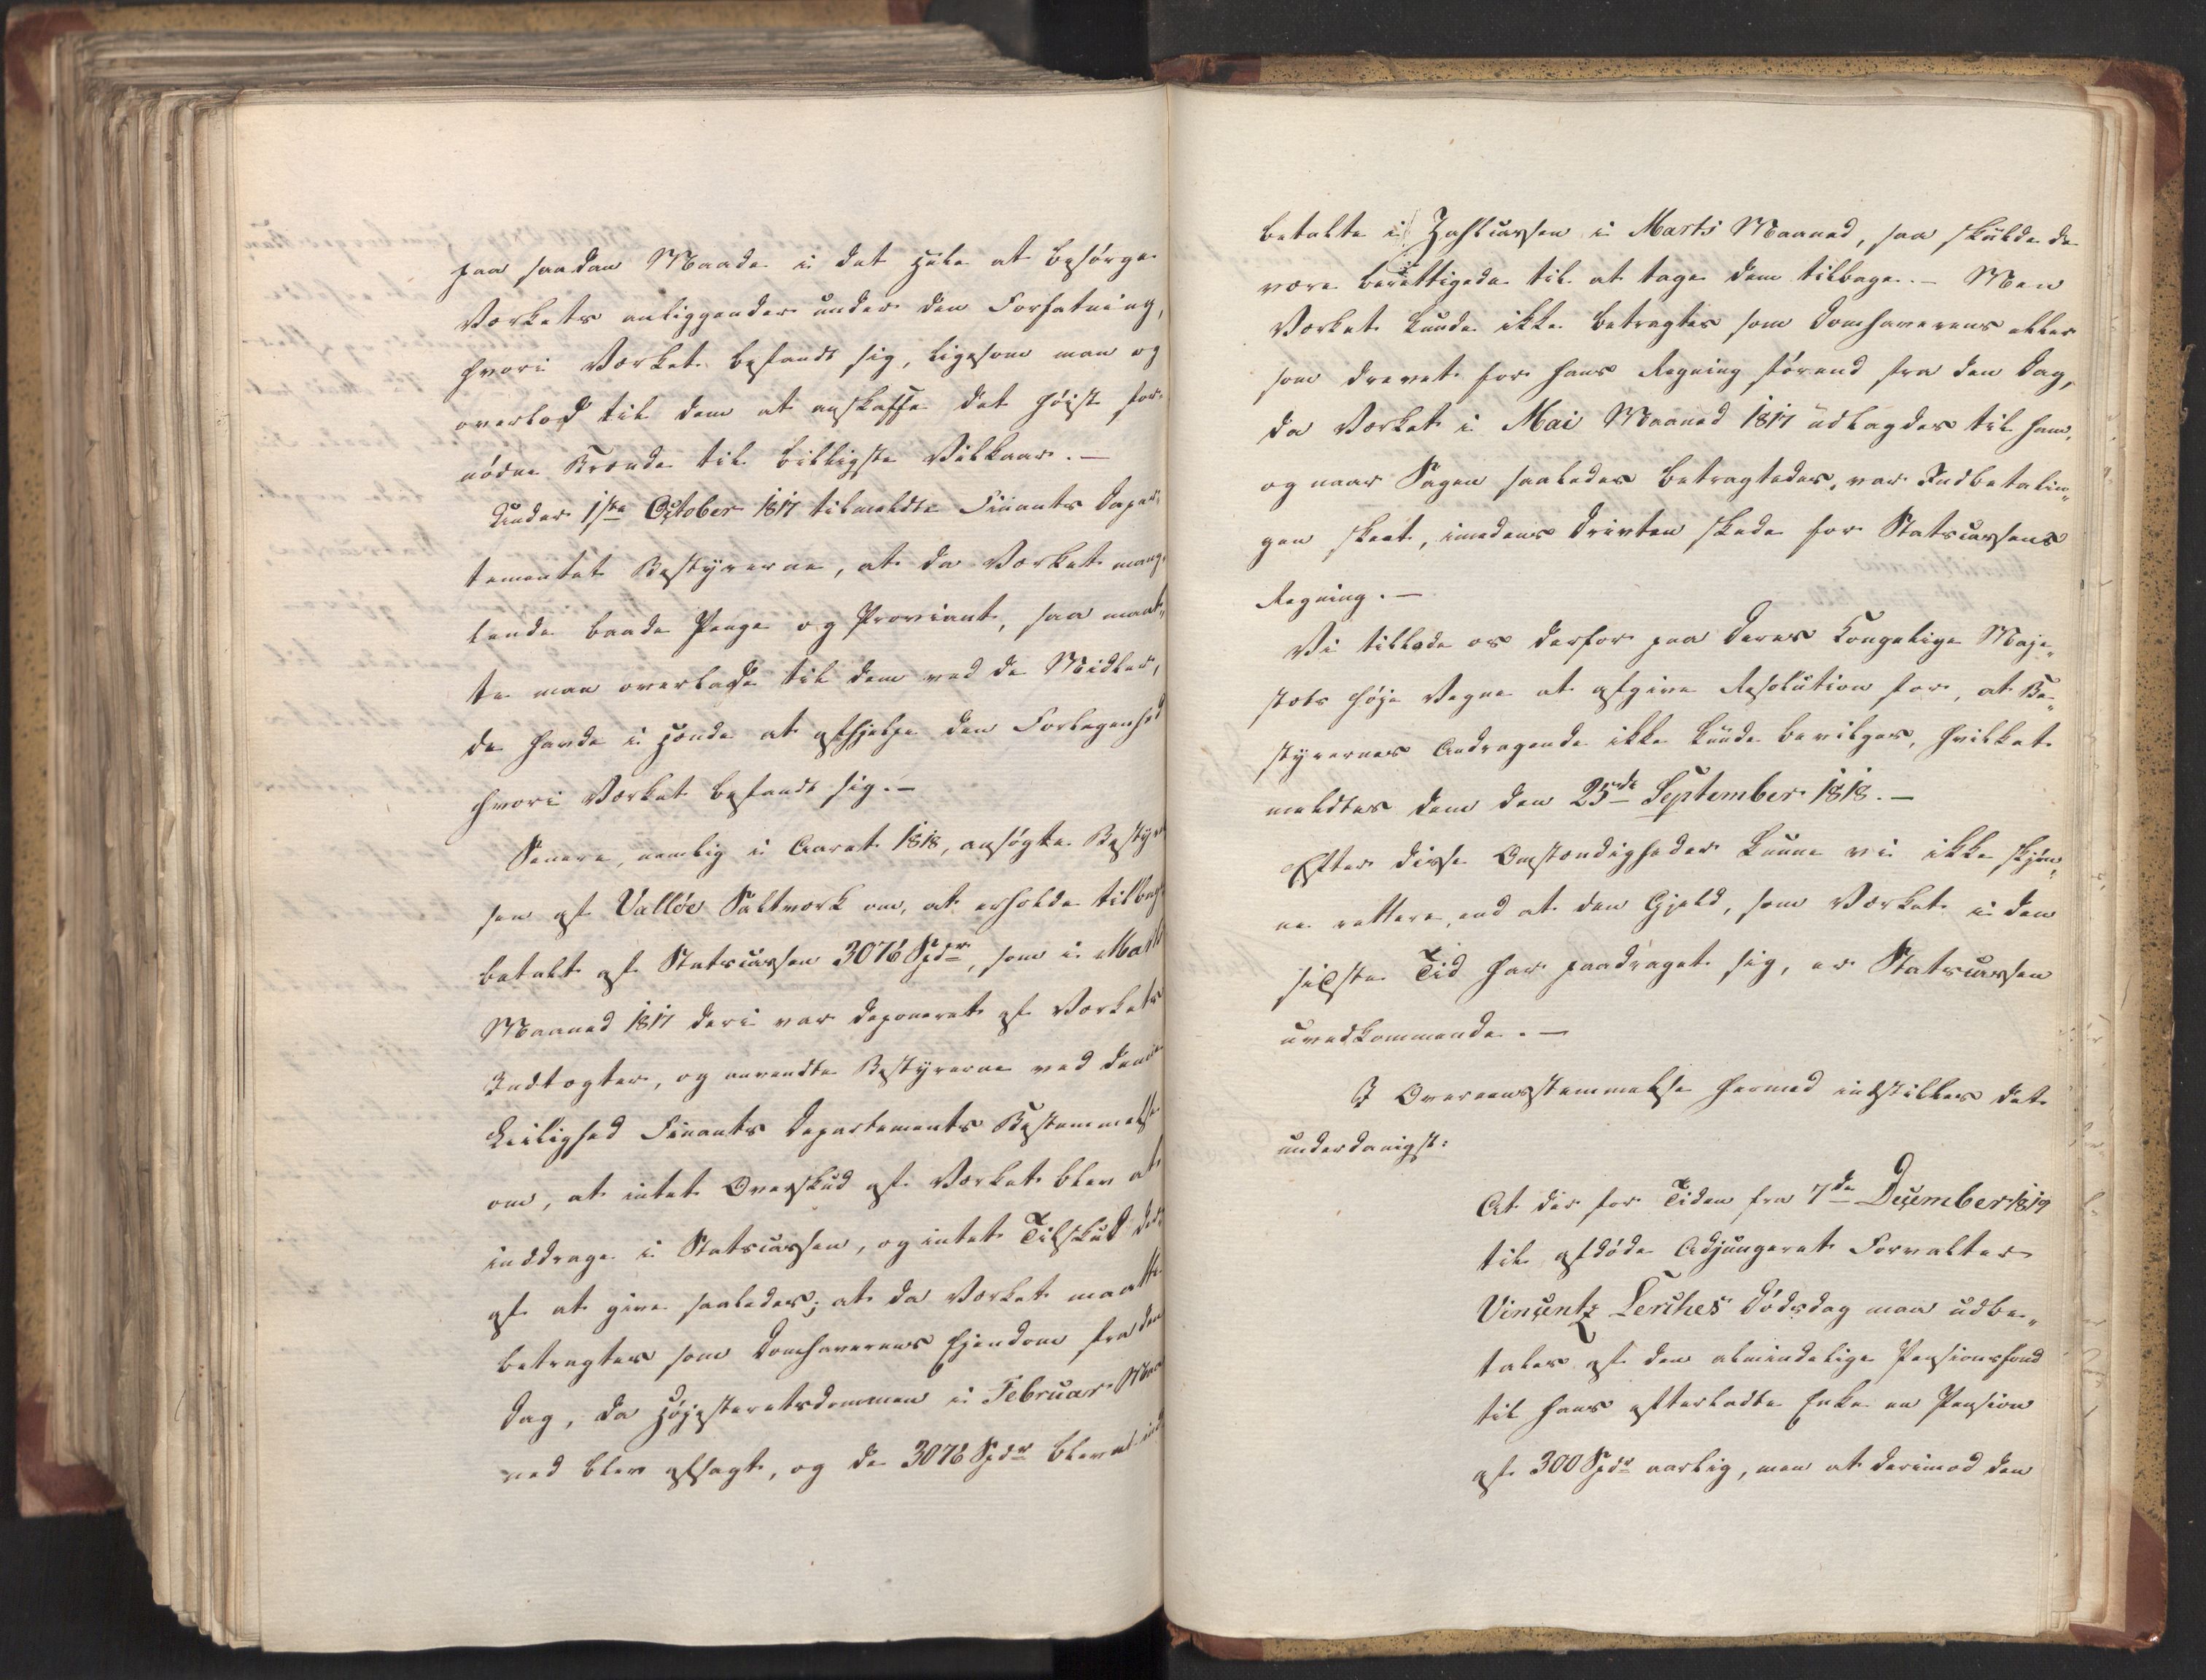 paa saadan Maade i det Hele at besørge
Værkets anliggender under den Forfatning,
hvori Værket befandt sig, ligesom man og
overlod til dem at anskaffe det høist for-
nødne Brænde til billigste Vilkaar. —
Under 1ste October 1817 tilmeldte Finants Depar-
tementet Bestyrerne, at da Værket mang-
lende baade Penge og Proviant, saa maat-
te man overlade til dem ved de Midler,
de havde i Hænde at afhjelpe den Forlegenhed
hvori Værket befandt sig. —
Senere, nemlig i Aaret 1818, ansøgte Bestyrel
sen af Valløe Saltværk om, at erholde tilbage
betalt af Statscassen 3076 Spdr, som i Marts
Maaned 1817 deri var deponeret af Værkets
Indtægter, og anvendte Bestyrerne ved denne
Leilighed Finants Departements Bestemmelse
om, at intet Overskud af Værket blev at
inddrage i Statscassen, og intet Tilskud der
af at give saaledes; at da Værket maatte
betragtes som Domhaverens Ejendom fra den
Dag, da Høiesteretsdommen i Februar Maa
ned blev afsagt, og de 3076 Spdr bleve ind
betalte i Zahlcassen i Marts Maaned, saa skulde de
være berettigede til at tage dem tilbage. — Men
Værket kunde ikke betragtes som Domhaverens eller
som drevet for hans Regning førend fra den Dag,
da Værket i Mai Maaned 1817 udlagdes til ham,
og naar Sagen saaledes betragtedes, var Indbetalin-
gen skeet, imedens Drivten skede for Statscassens
Regning. —
Vi tillode os derfor paa Deres Kongelige Maje-
stæts høje Vegne at afgive Resolution for, at Be-
styrernes Andragende ikke kunde bevilges, hvilket
meldtes dem den 25de September 1818. —
Efter disse Omstændigheder kunne vi ikke skjøn-
ne rettere, end at den Gjeld, som Værket i den
sidste Tid har paadraget sig, er Statscassen
uvedkommende. —
I Overeensstemmelse hermed indstilles det
underdanigst:
At der for Tiden fra 7de December 1819
til afdøde Adjungeret Forvalter
Vincentz Lerches Dødsdag maa udbe-
tales af den almindelige Pensionsfond
til hans efterladte Enke en Pension
af 300 Spdr aarlig, men at derimod den